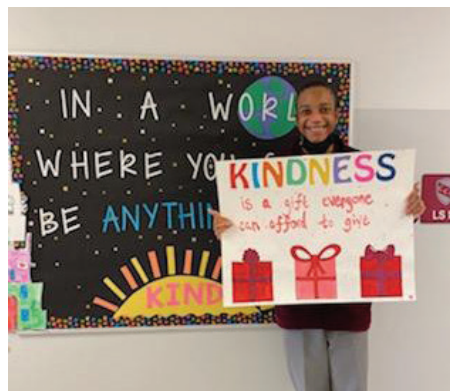 IN A WORL
WHERE YOU
BE ANYTHIN
KIND
KINDNESS
is a gift everyone
can afford to give
LS